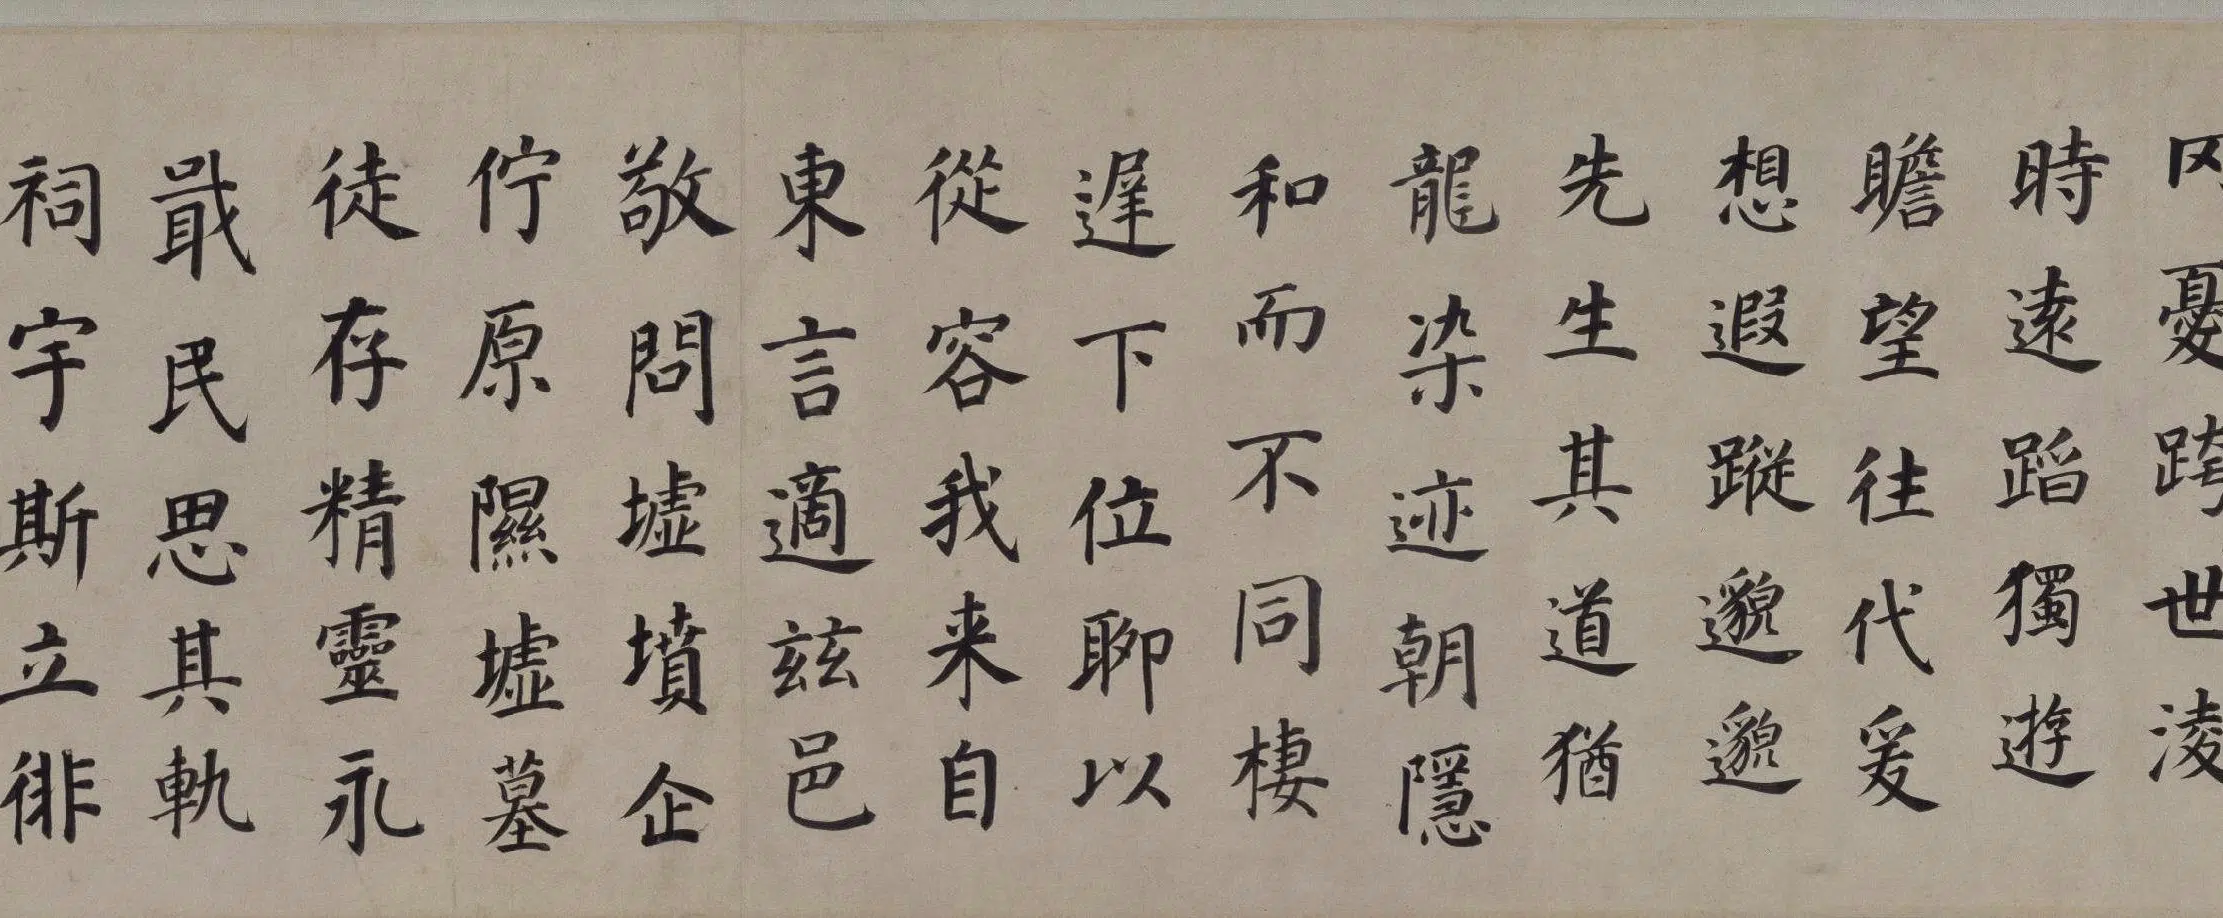 憂跨世淩
時遠蹈獨遊
瞻望往代爰
想遐蹤邈邈
先生其道猶
龍染迹朝隱
和而不同棲
遲下位聊以
從容我来自
東言適兹邑
敬問墟墳企
佇原隰墟墓
徒存精靈永
戢民思其軌
祠宇斯立徘